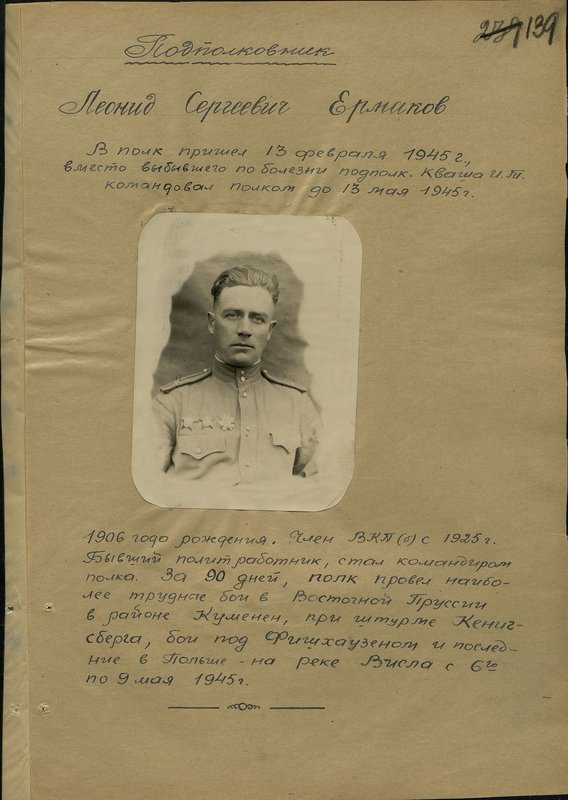 239 139
Подполковник
Леонид Сергеевич Ермаков
В полк пришел 13 февраля 1945 г.,
вместо выбывшего по болезни подполк. Кваша И.Т.
командовал полком до 13 мая 1945г.
1906 года рождения. Член ВКП(б) с 1925 г.
Бывший политработник, стал командиром
полка. За 90 дней, полк провел наибо-
лее трудные бои в Восточной Пруссии
в районе Куменен, при штурме Кениг-
сберга, бои под Фишхаузеном и послед-
ние в Польше - на реке Висла с 6го
по 9 мая 1945г.